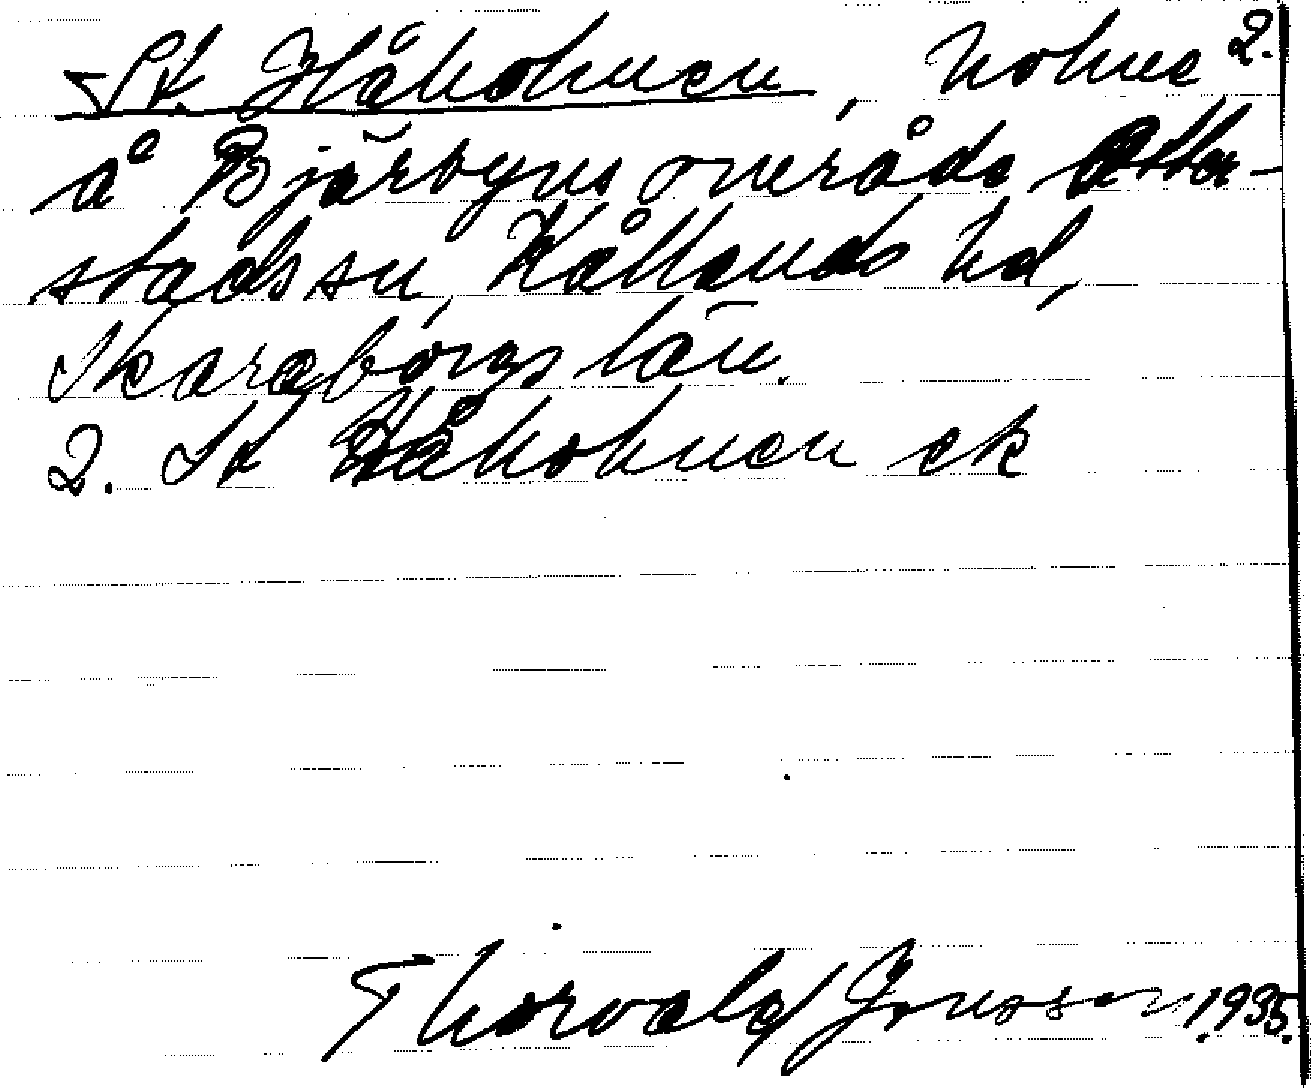 St. Håkohuen, holme 2.
å Bjärbyns område Otter-
stads sn, Kållands hd,
Skaraborgs län.
2. St Håkohuen ek
Thorvald Jonsson 1935.